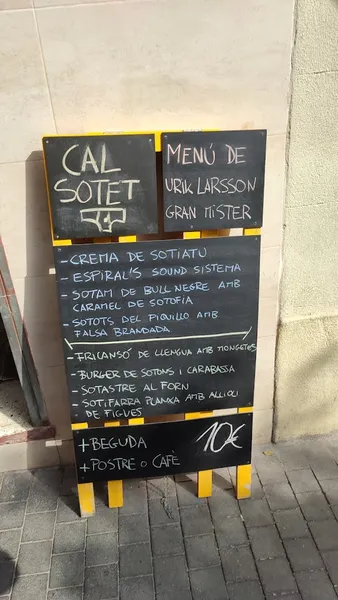 CAL
SOTET
MENÚ DE
URIK LARSSON
GRAN MISTER
- CREMA DE SOTIATU
- ESPIRAL'S SOUND SISTEMA
- SOTAM DE BULL NEGRE AMB
CARAMEL DE SOTOFIA
- SOTOTS DEL PIQUILLO AMB
FALSA BRANDADA
- FRICANSÓ DE LLENGUA AMB MONGETES
- BURGER DE SOTONS I CARABASSA
- SOTASTRE AL FORN
- SOTIFARRA PLANXA AMB ALLIOLI
DE FIGUES
+ BEGUDA
+ POSTRE O CAFÈ
10€